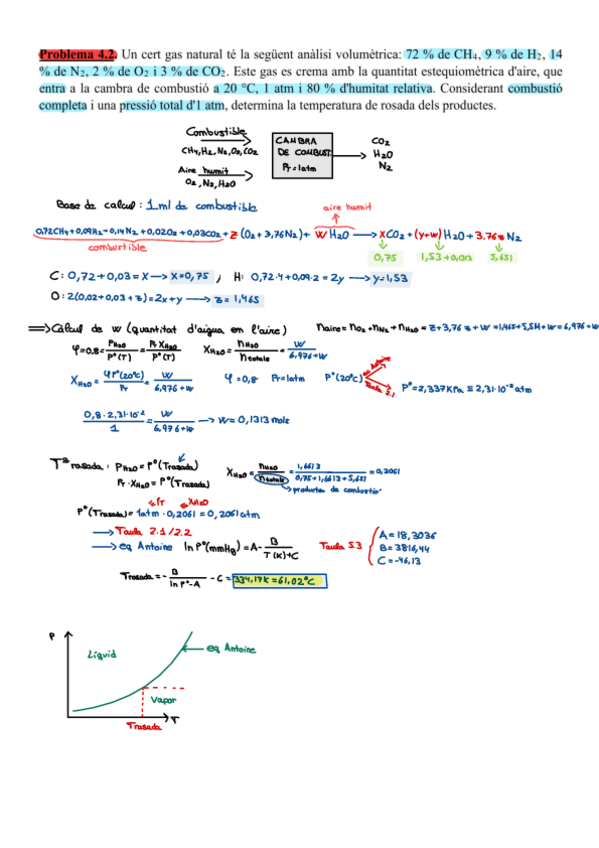 Problema 4.2. Un cert gas natural té la següent anàlisi volumètrica: 72 % de CH₄, 9 % de H₂, 14
% de N₂, 2 % de O₂ i 3 % de CO₂. Este gas es crema amb la quantitat estequiomètrica d'aire, que
entra a la cambra de combustió a 20 °C, 1 atm i 80 % d'humitat relativa. Considerant combustió
completa i una pressió total d'1 atm, determina la temperatura de rosada dels productes.
Combustible
CH4, H2, N2, O2, CO2
Aire humit
O2, N2, H2O
CAMBRA
DE COMBUST
PT = 1atm
CO2
H2O
N2
Base de calcul: 1 ml de combustible
aire humit
0,72CH4+0,09H2+0,14N2+0,02O2+0,03CO2+Z(O2+3,76N2)+ W H2O → XCO2+(y+w)H2O+3.76z N2
combustible
0,75 1,53+0,1313 5,651
C: 0,72+0,03=X → X=0,75 ; H: 0,72·4+0,09·2=2y → y=1,53
O: 2(0,02+0,03+z)=2x+y → z=1,465
⇒ Càlcul de w (quantitat d'aigua en l'aire) naire = nO2+nN2+nH2O = z+3,76 z+w =1,465+5,51+w = 6,976+w
φ=0,8= PH2O/P°(T) = PT XH2O/P°(T) XH2O = nH2O/ntotals = W/6,976+W
XH2O = φP°(20°C)/PT = W/6,976+W φ=0,8 PT=1atm P°(20°C) Taula 2.1 P°=2,337 KPa ≡ 2,31·10⁻² atm
0,8·2,31·10⁻²/1 = W/6,976+W → W=0,1313 mols
Tª rosada: PH2O = P°(Trosada) XH2O = nH2O/ntotals = 1,6613/0,75+1,6613+5,651 = 0,2061
PT·XH2O = P°(Trosada) → productes de combustió
PT XH2O
P°(Trosada) = 1atm·0,2061 = 0,2061 atm
→ Taula 2.1/2.2
→ eq Antoine ln P°(mmHg) = A - B/T(K)+C Taula 5.3
A = 18,3036
B = 3816,44
C = -46,13
Trosada = - B/ln P°-A - C = 334,17K = 61,02°C
P
Líquid
eq Antoine
Vapor
T
Trosada